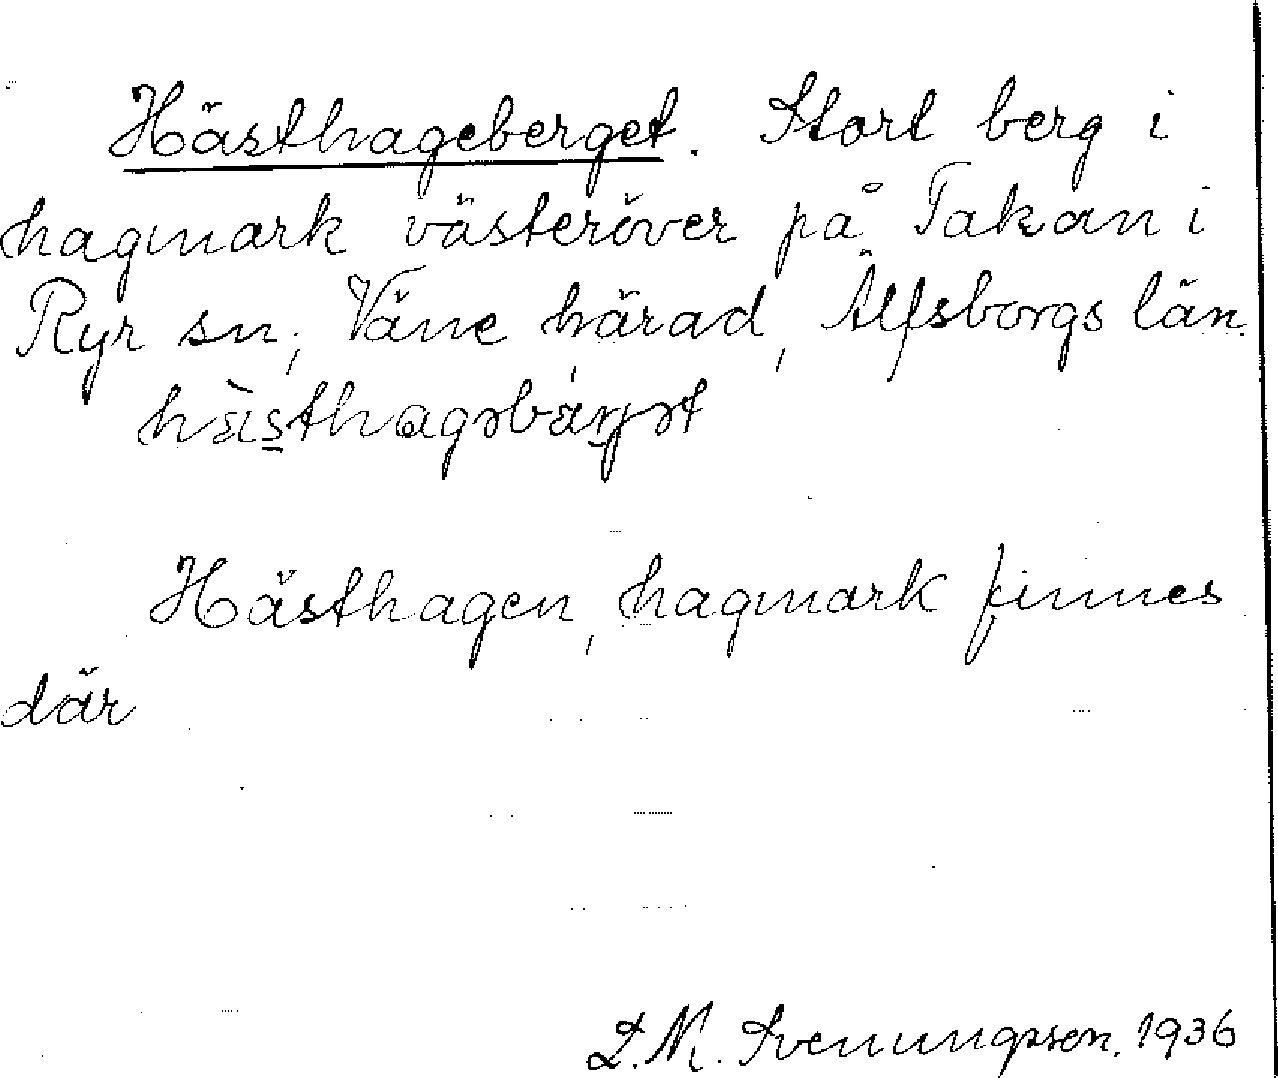 Hästhageberget. Stort berg i
hagmark västeröver på Takan i
Ryr sn, Väne härad, Älfsborgs län.
hàsthagəbárjət
Hästhagen, hagmark finnes
där
L.M. Svenungsson. 1936